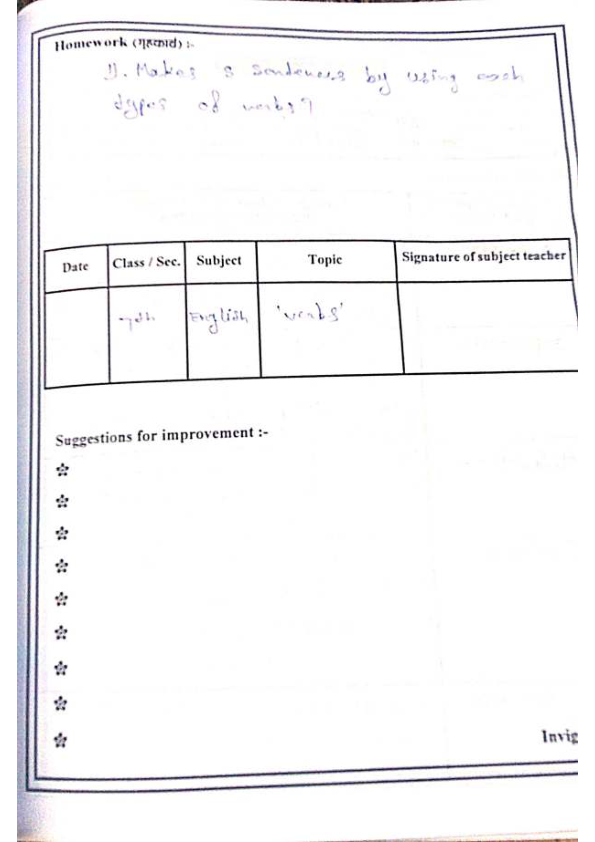 Homework (गृहकार्य) :-
1). Makes 5 sentences by using each
types of verbs?
Date Class / Sec. Subject Topic Signature of subject teacher
7th English 'verbs'
Suggestions for improvement :-
Invig